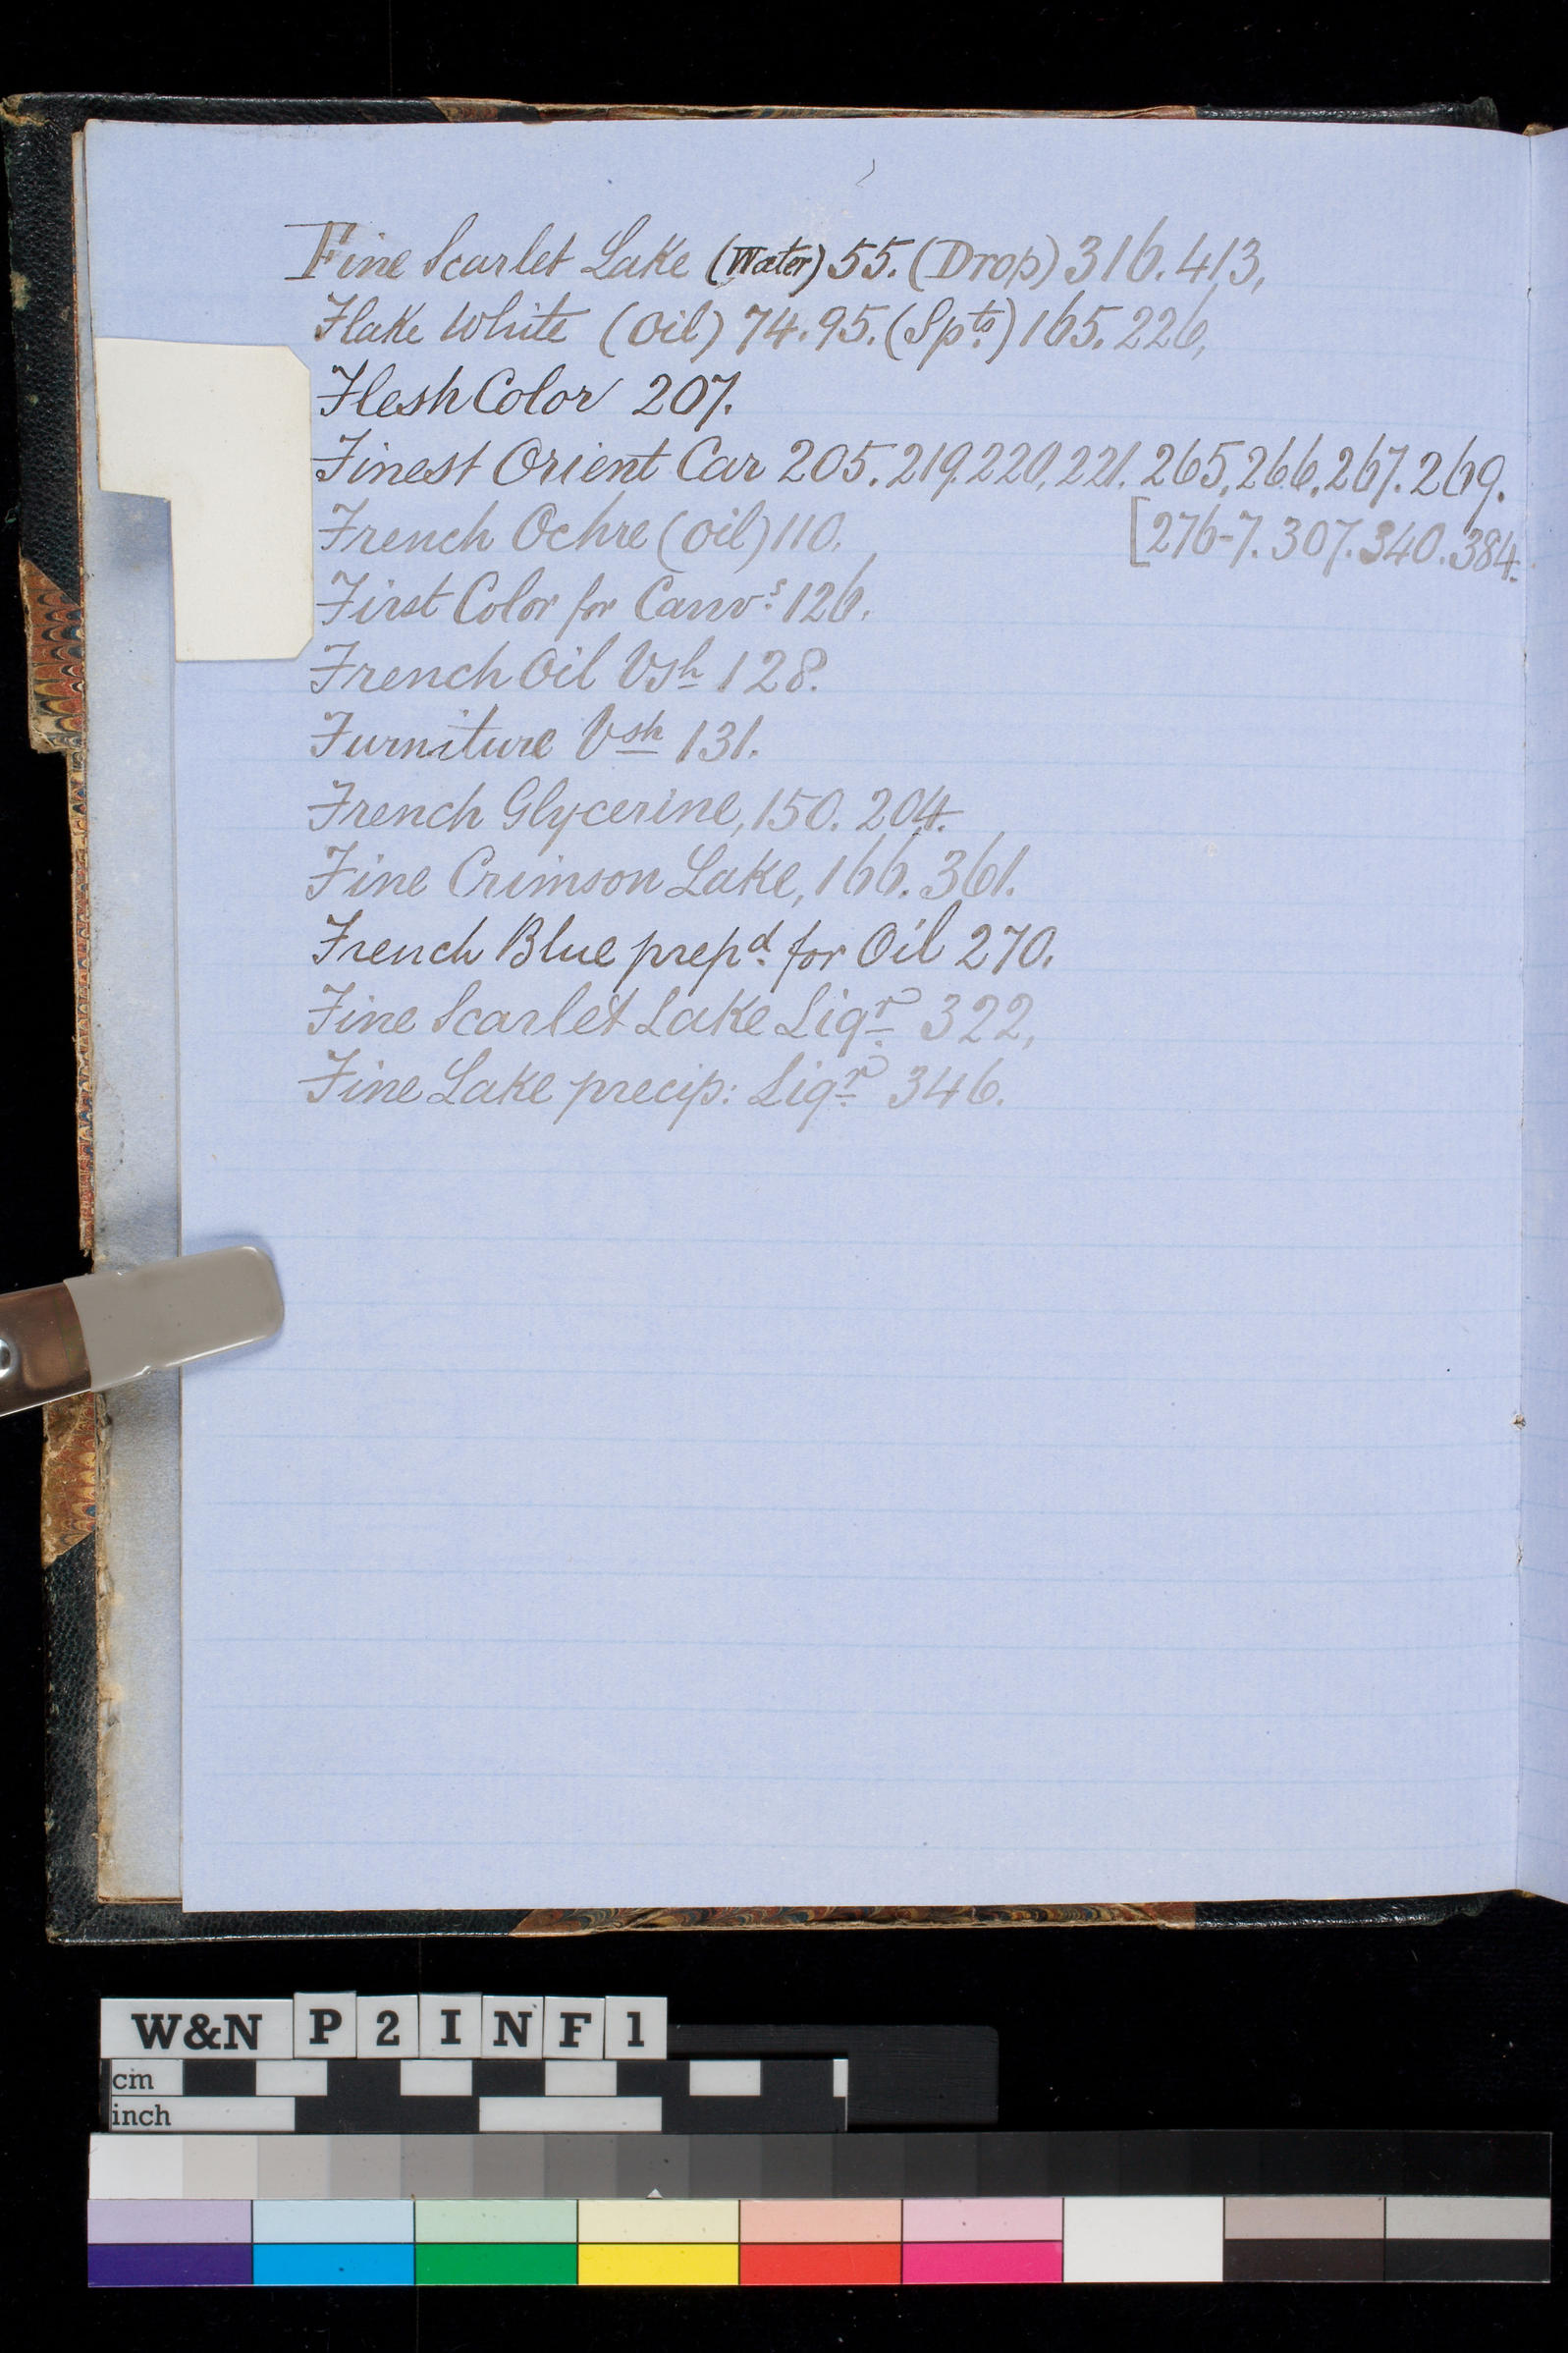 Fine Scarlet Lake (Water) 55. (Drop) 316. 413,
Flake White (Oil) 74. 95. (Spts.) 165. 226,
Flesh Color 207.
Finest Orient Car 205. 219. 220, 221. 265, 266, 267. 269.
French Ochre (Oil) 110. [276-7. 307. 340. 384.
First Color for Canvs. 126.
French Oil Vsh 128.
Furniture Vsh 131.
French Glycerine, 150. 204.
Fine Crimson Lake, 166. 361.
French Blue prepd. for Oil 270.
Fine Scarlet Lake Liqr. 322,
Fine Lake precip: Liqr. 346.
W&N P 2 I N F 1
cm
inch